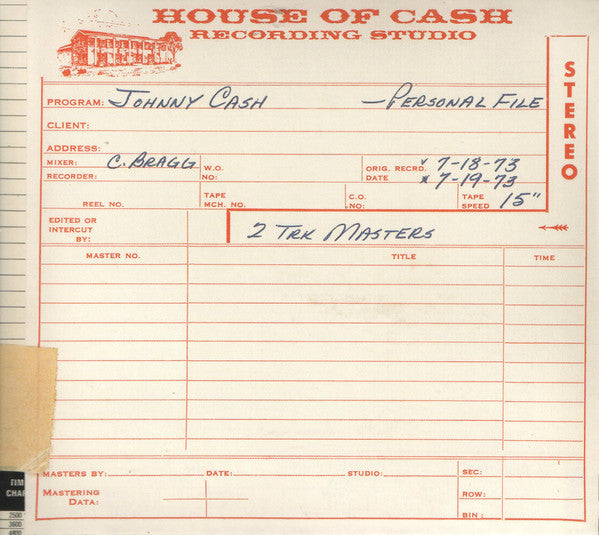 HOUSE OF CASH
RECORDING STUDIO
STEREO
PROGRAM: JOHNNY CASH —PERSONAL FILE
CLIENT:
ADDRESS:
MIXER: C. BRAGG W.O. NO: ORIG. RECRD. DATE 7-18-73
RECORDER: 7-19-73
REEL NO. TAPE MCH. NO. C.O. NO: TAPE SPEED 15"
EDITED OR INTERCUT BY: 2 TRK MASTERS
MASTER NO. TITLE TIME
MASTERS BY: DATE: STUDIO: SEC:
MASTERING DATA: ROW:
BIN:
TIM
CHAR
2500
3600